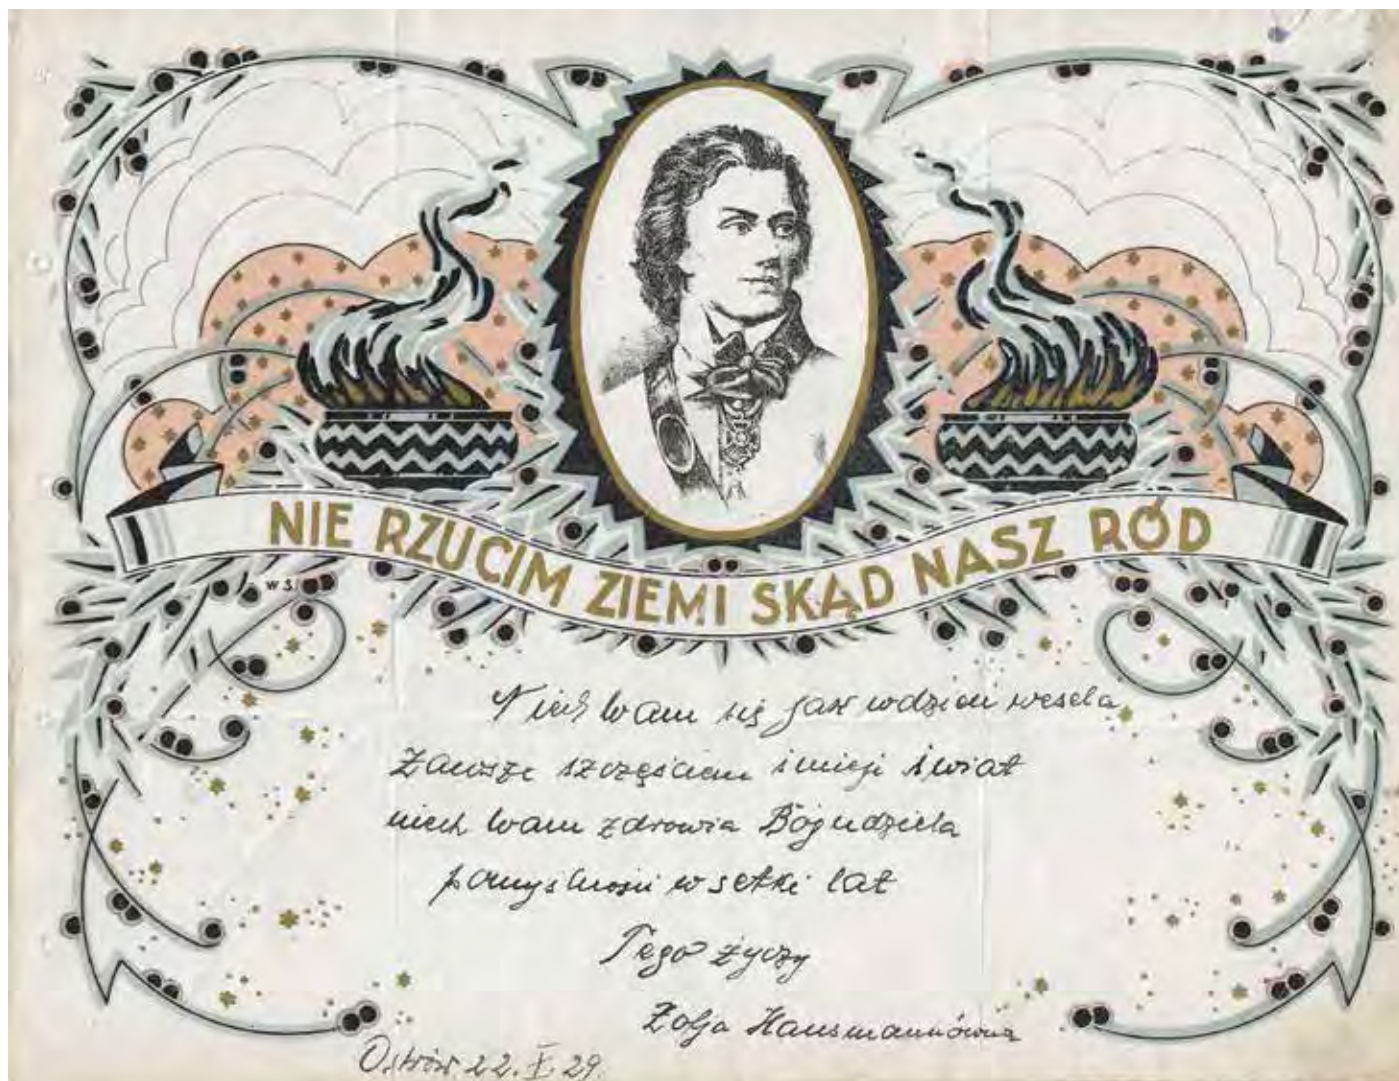 NIE RZUCIM ZIEMI SKĄD NASZ RÓD
W.S.
Niech Wam się jak w dzień wesela
zawsze szczęściem śmieje świat
niech Wam zdrowia Bóg udziela
pomyślności w setki lat
Tego życzy
Zofja Hausmannówna
Ostrów 22. X. 29.